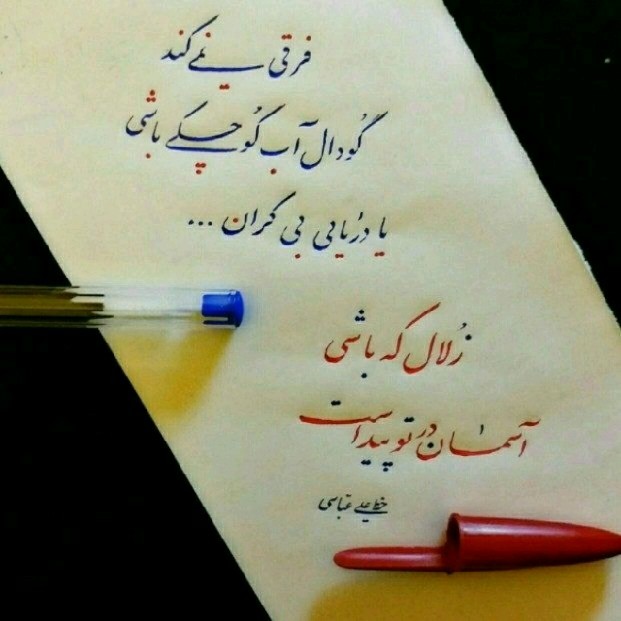 فرقی نمی‌کند
گودال آب کوچکی باشی
یا دریایی بی کران ...
زُلال که باشی
آسمان در تو پیداست
خط علی عباسی